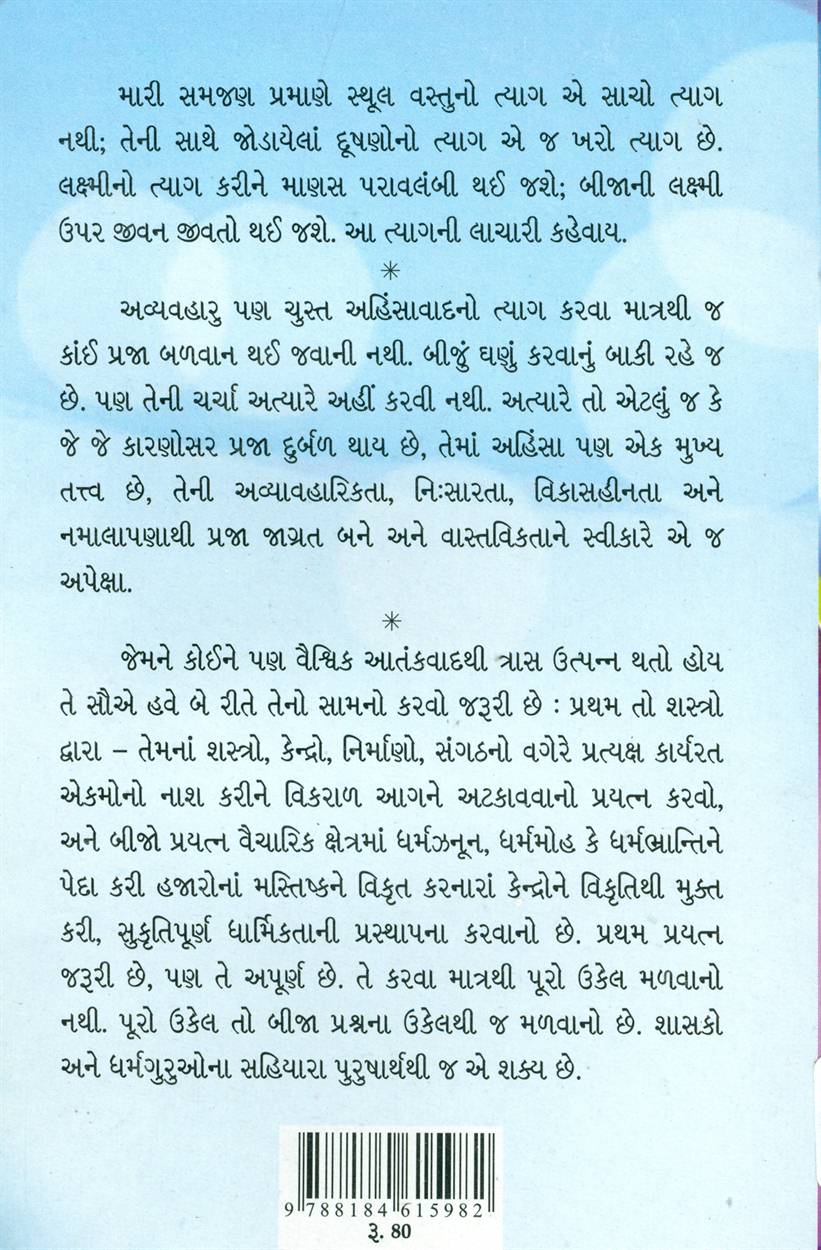 મારી સમજણ પ્રમાણે સ્થૂલ વસ્તુનો ત્યાગ એ સાચો ત્યાગ
નથી; તેની સાથે જોડાયેલાં દૂષણોનો ત્યાગ એ જ ખરો ત્યાગ છે.
લક્ષ્મીનો ત્યાગ કરીને માણસ પરાવલંબી થઈ જશે; બીજાની લક્ષ્મી
ઉપર જીવન જીવતો થઈ જશે. આ ત્યાગની લાચારી કહેવાય.
✳
અવ્યવહારુ પણ ચુસ્ત અહિંસાવાદનો ત્યાગ કરવા માત્રથી જ
કાંઈ પ્રજા બળવાન થઈ જવાની નથી. બીજું ઘણું કરવાનું બાકી રહે જ
છે. પણ તેની ચર્ચા અત્યારે અહીં કરવી નથી. અત્યારે તો એટલું જ કે
જે જે કારણોસર પ્રજા દુર્બળ થાય છે, તેમાં અહિંસા પણ એક મુખ્ય
તત્ત્વ છે, તેની અવ્યાવહારિકતા, નિઃસારતા, વિકાસહીનતા અને
નમાલાપણાથી પ્રજા જાગ્રત બને અને વાસ્તવિકતાને સ્વીકારે એ જ
અપેક્ષા.
✳
જેમને કોઈને પણ વૈશ્વિક આતંકવાદથી ત્રાસ ઉત્પન્ન થતો હોય
તે સૌએ હવે બે રીતે તેનો સામનો કરવો જરૂરી છે : પ્રથમ તો શસ્ત્રો
દ્વારા – તેમનાં શસ્ત્રો, કેન્દ્રો, નિર્માણો, સંગઠનો વગેરે પ્રત્યક્ષ કાર્યરત
એકમોનો નાશ કરીને વિકરાળ આગને અટકાવવાનો પ્રયત્ન કરવો,
અને બીજો પ્રયત્ન વૈચારિક ક્ષેત્રમાં ધર્મઝનૂન, ધર્મમોહ કે ધર્મભ્રાન્તિને
પેદા કરી હજારોનાં મસ્તિષ્કને વિકૃત કરનારાં કેન્દ્રોને વિકૃતિથી મુક્ત
કરી, સુકૃતિપૂર્ણ ધાર્મિકતાની પ્રસ્થાપના કરવાનો છે. પ્રથમ પ્રયત્ન
જરૂરી છે, પણ તે અપૂર્ણ છે. તે કરવા માત્રથી પૂરો ઉકેલ મળવાનો
નથી. પૂરો ઉકેલ તો બીજા પ્રશ્નના ઉકેલથી જ મળવાનો છે. શાસકો
અને ધર્મગુરુઓના સહિયારા પુરુષાર્થથી જ એ શક્ય છે.
9 788184 615982
રૂ. 80